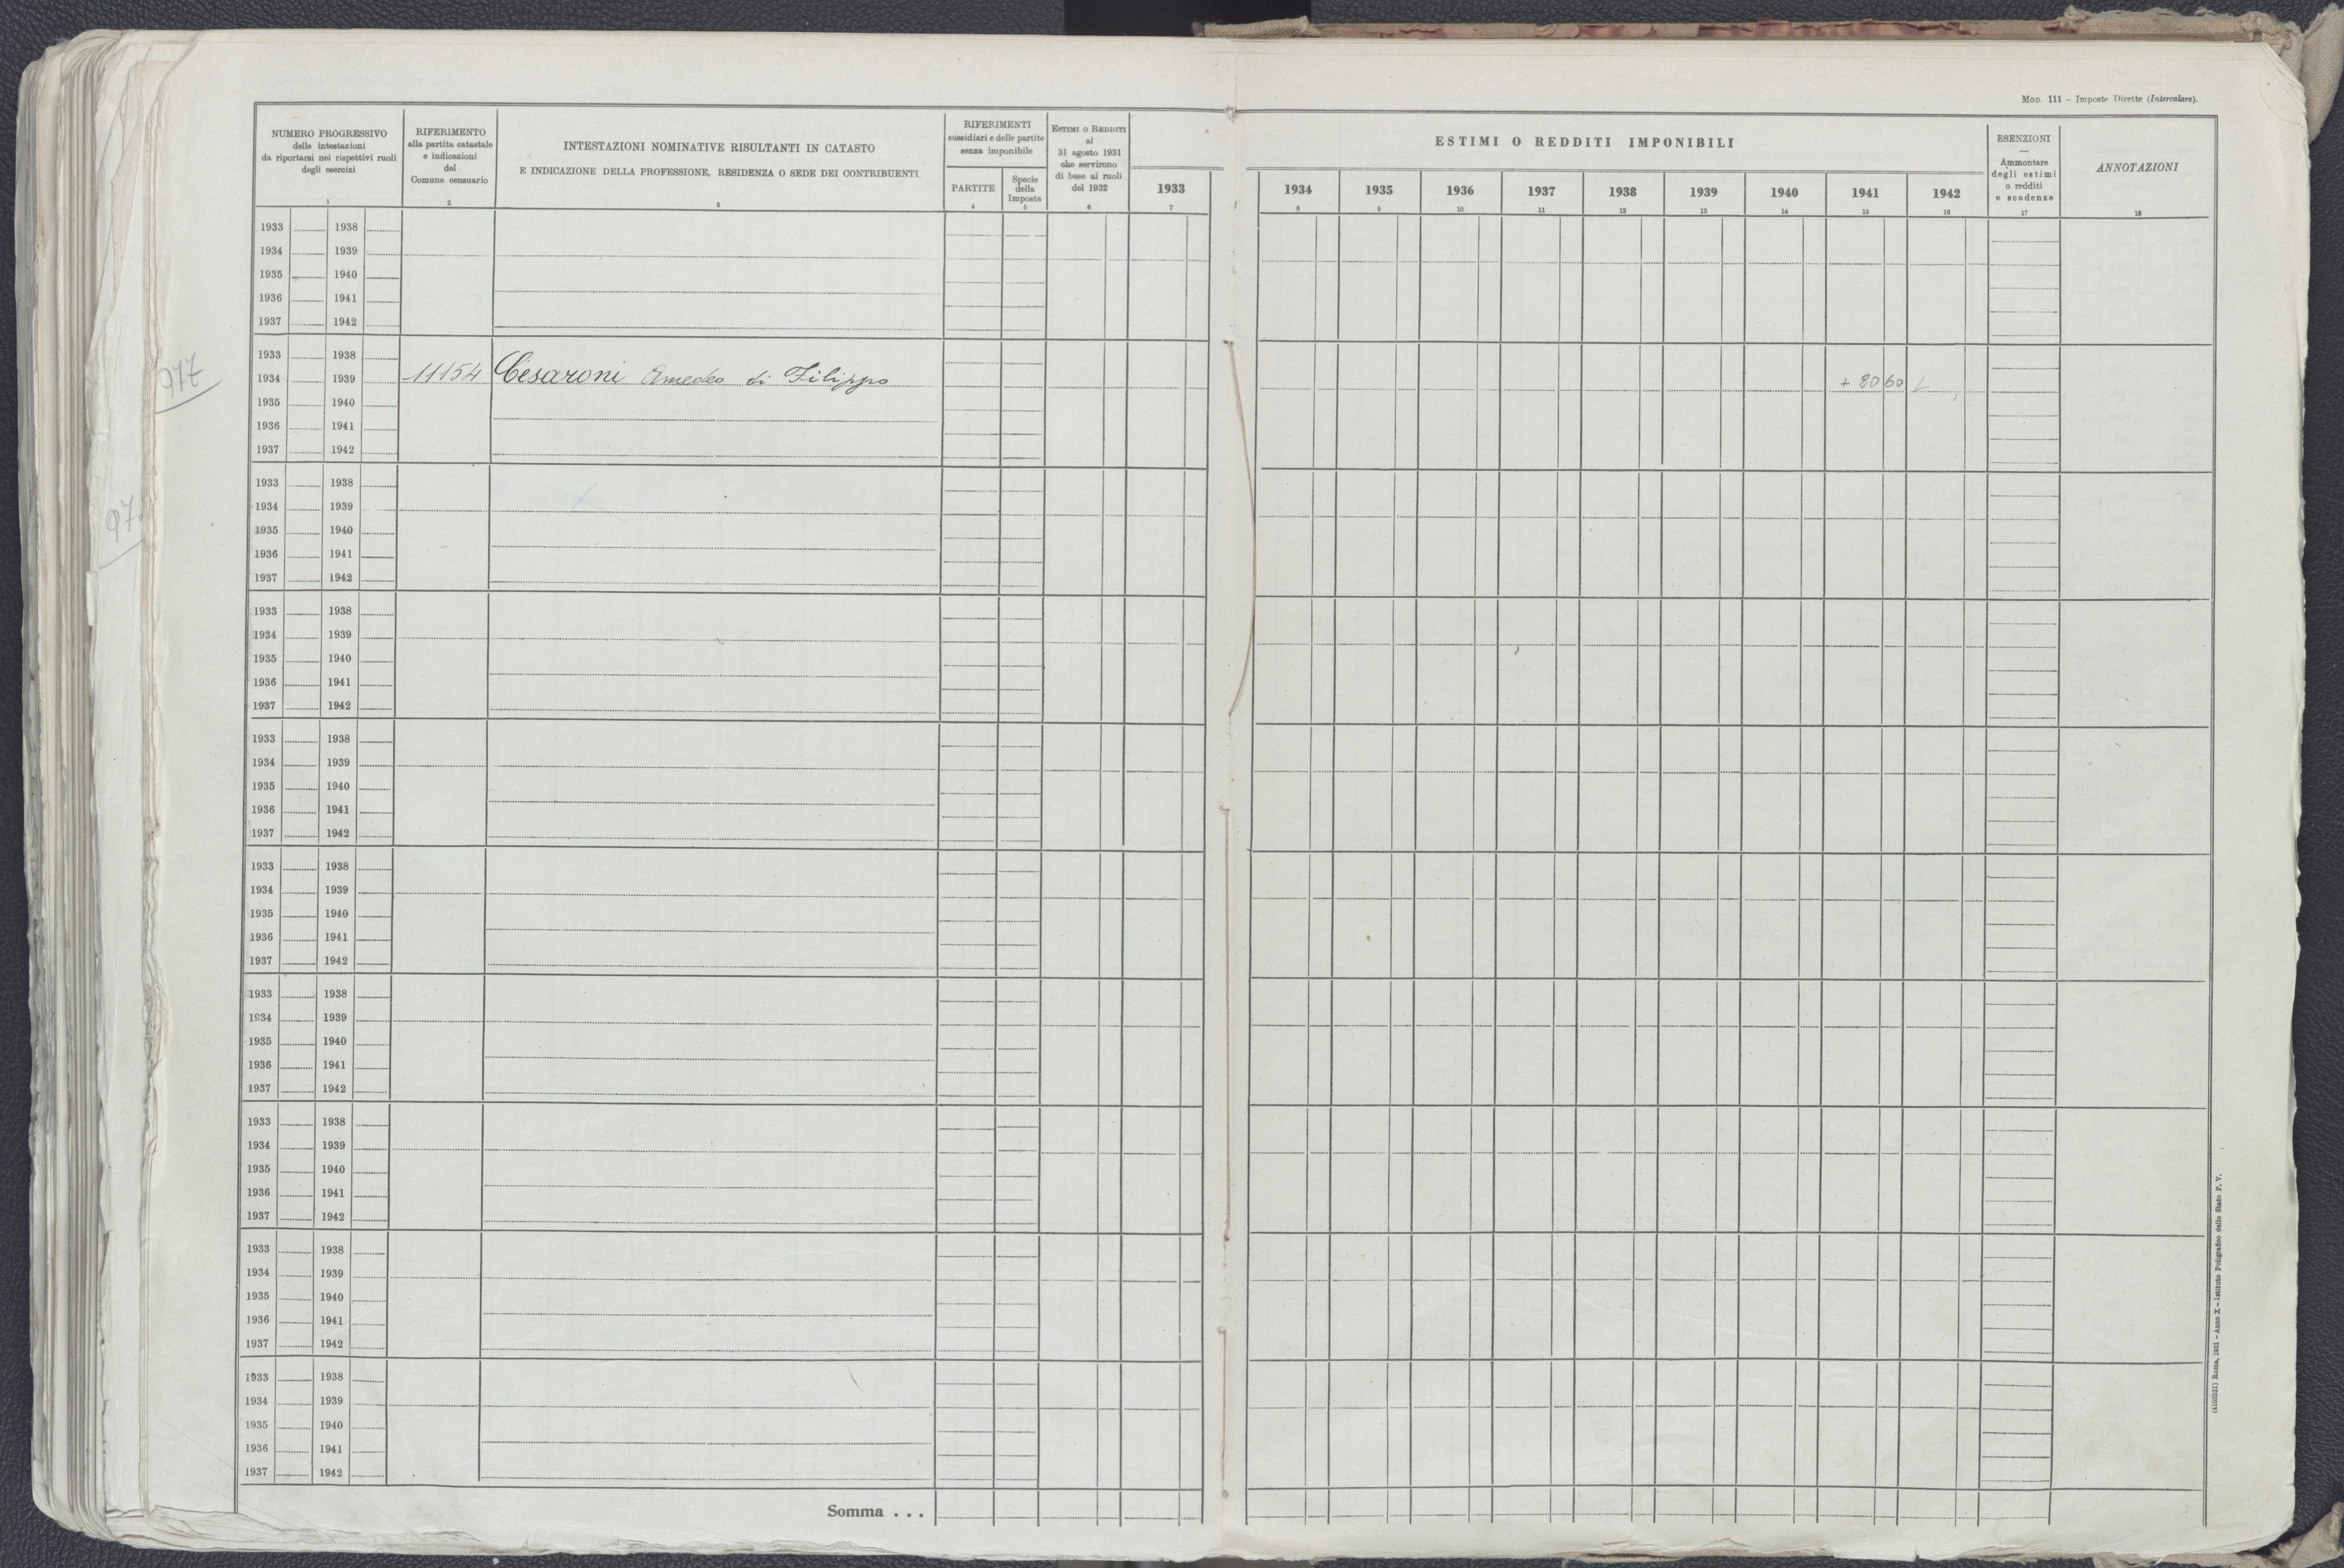 MOD. 111 – Imposte Dirette (Intercalare).
NUMERO PROGRESSIVO
delle intestazioni
da riportarsi nei rispettivi ruoli
degli esercizi
1
RIFERIMENTO
alla partita catastale
e indicazioni
del
Comune censuario
2
INTESTAZIONI NOMINATIVE RISULTANTI IN CATASTO
E INDICAZIONE DELLA PROFESSIONE, RESIDENZA O SEDE DEI CONTRIBUENTI
3
RIFERIMENTI
sussidiari e delle partite
senza imponibile
PARTITE
4
Specie
della
Imposta
5
ESTIMI O REDDITI
al
31 agosto 1931
che servirono
di base ai ruoli
del 1932
6
ESTIMI O REDDITI IMPONIBILI
1933 1934 1935 1936 1937 1938 1939 1940 1941 1942
7 8 9 10 11 12 13 14 15 16
ESENZIONI
—
Ammontare
degli estimi
o redditi
e scadenze
17
ANNOTAZIONI
18
1933 1938
1934 1939
1935 1940
1936 1941
1937 1942
977
1933 1938
1934 1939 11154 Cesaroni Amedeo di Filippo + 20 60
1935 1940
1936 1941
1937 1942
97
1933 1938
1934 1939
1935 1940
1936 1941
1937 1942
1933 1938
1934 1939
1935 1940
1936 1941
1937 1942
1933 1938
1934 1939
1935 1940
1936 1941
1937 1942
1933 1938
1934 1939
1935 1940
1936 1941
1937 1942
1933 1938
1934 1939
1935 1940
1936 1941
1937 1942
1933 1938
1934 1939
1935 1940
1936 1941
1937 1942
1933 1938
1934 1939
1935 1940
1936 1941
1937 1942
1933 1938
1934 1939
1935 1940
1936 1941
1937 1942
Somma . . .
Roma, 1931 – Anno X – Istituto Poligrafico dello Stato P. V.